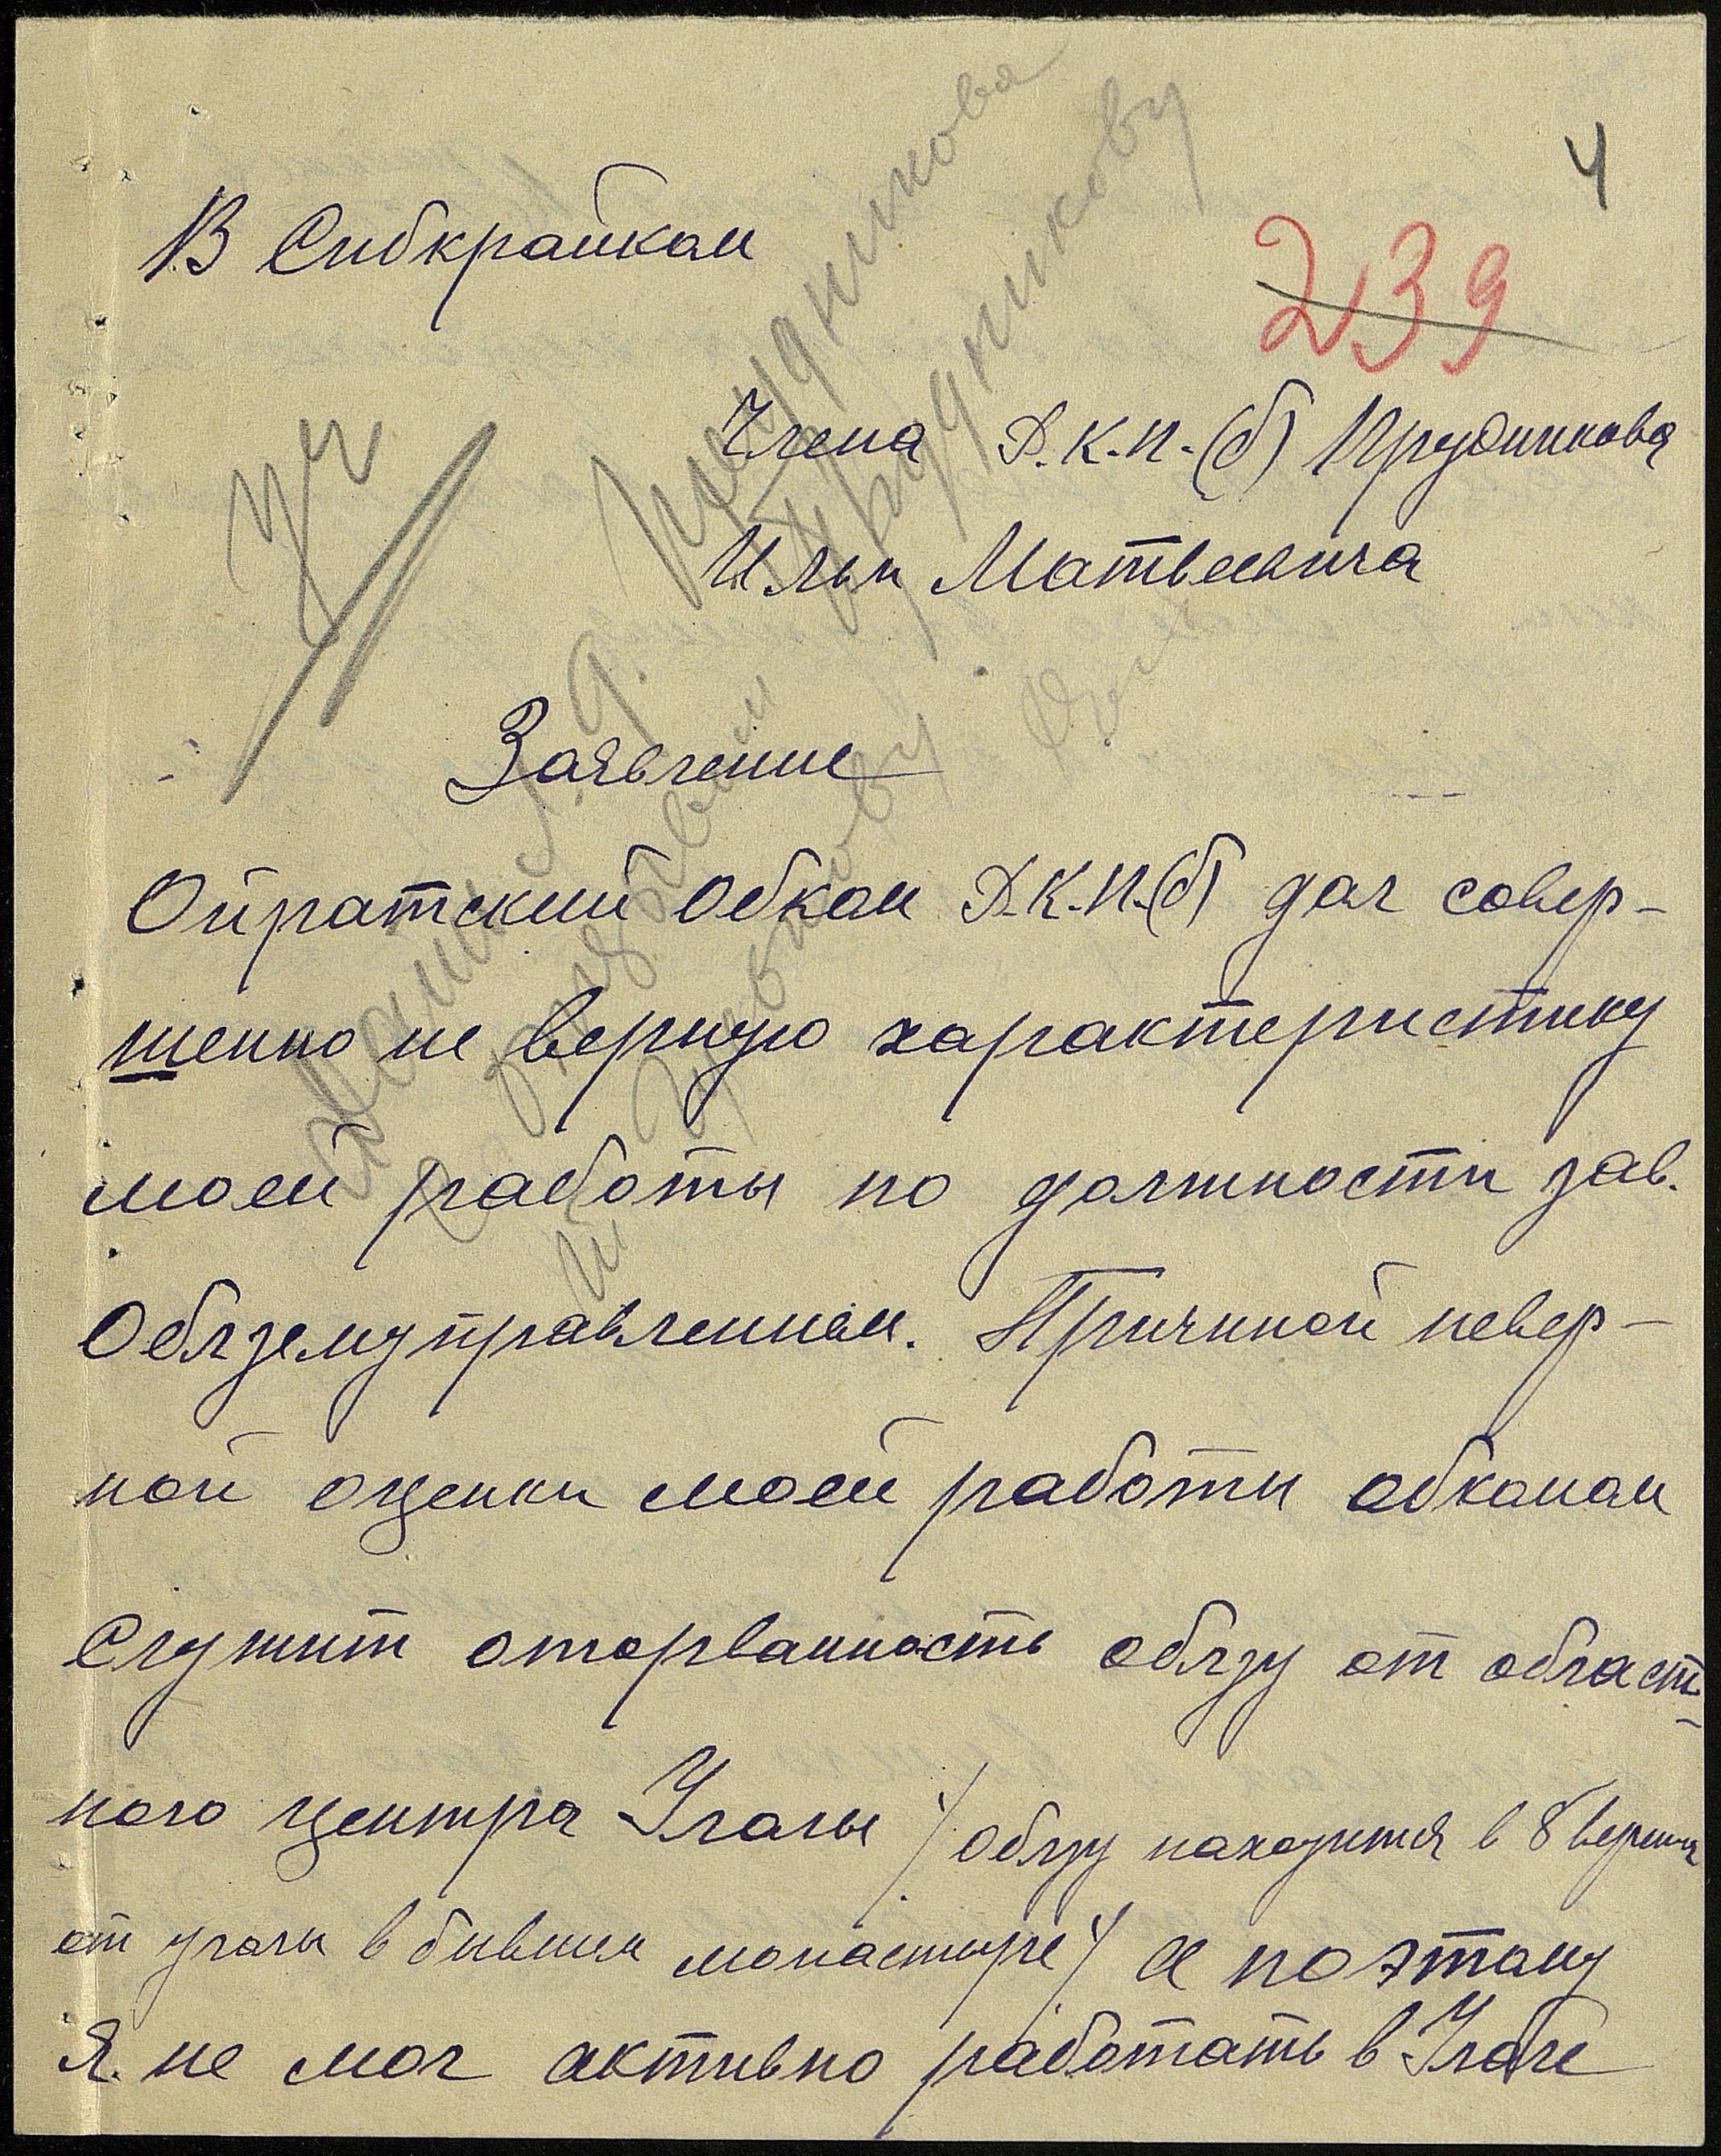 4
В Сибкрайком
239
Члена Р.К.П.(б) Прудникова
Ильи Матвеевича
Заявление
Ойратский Обком Р.К.П.(б) дал совер-
шенно не верную характеристику
моей работы по должности зав.
Облземуправлением. Причиной невер-
ной оценки моей работы обкомом
Служит оторванность облзу от област-
ного центра Улалы /облзу находится в 8 верстах
от улалы в бывшем монастыре/ и поэтому
Я не мог активно работать в Улале